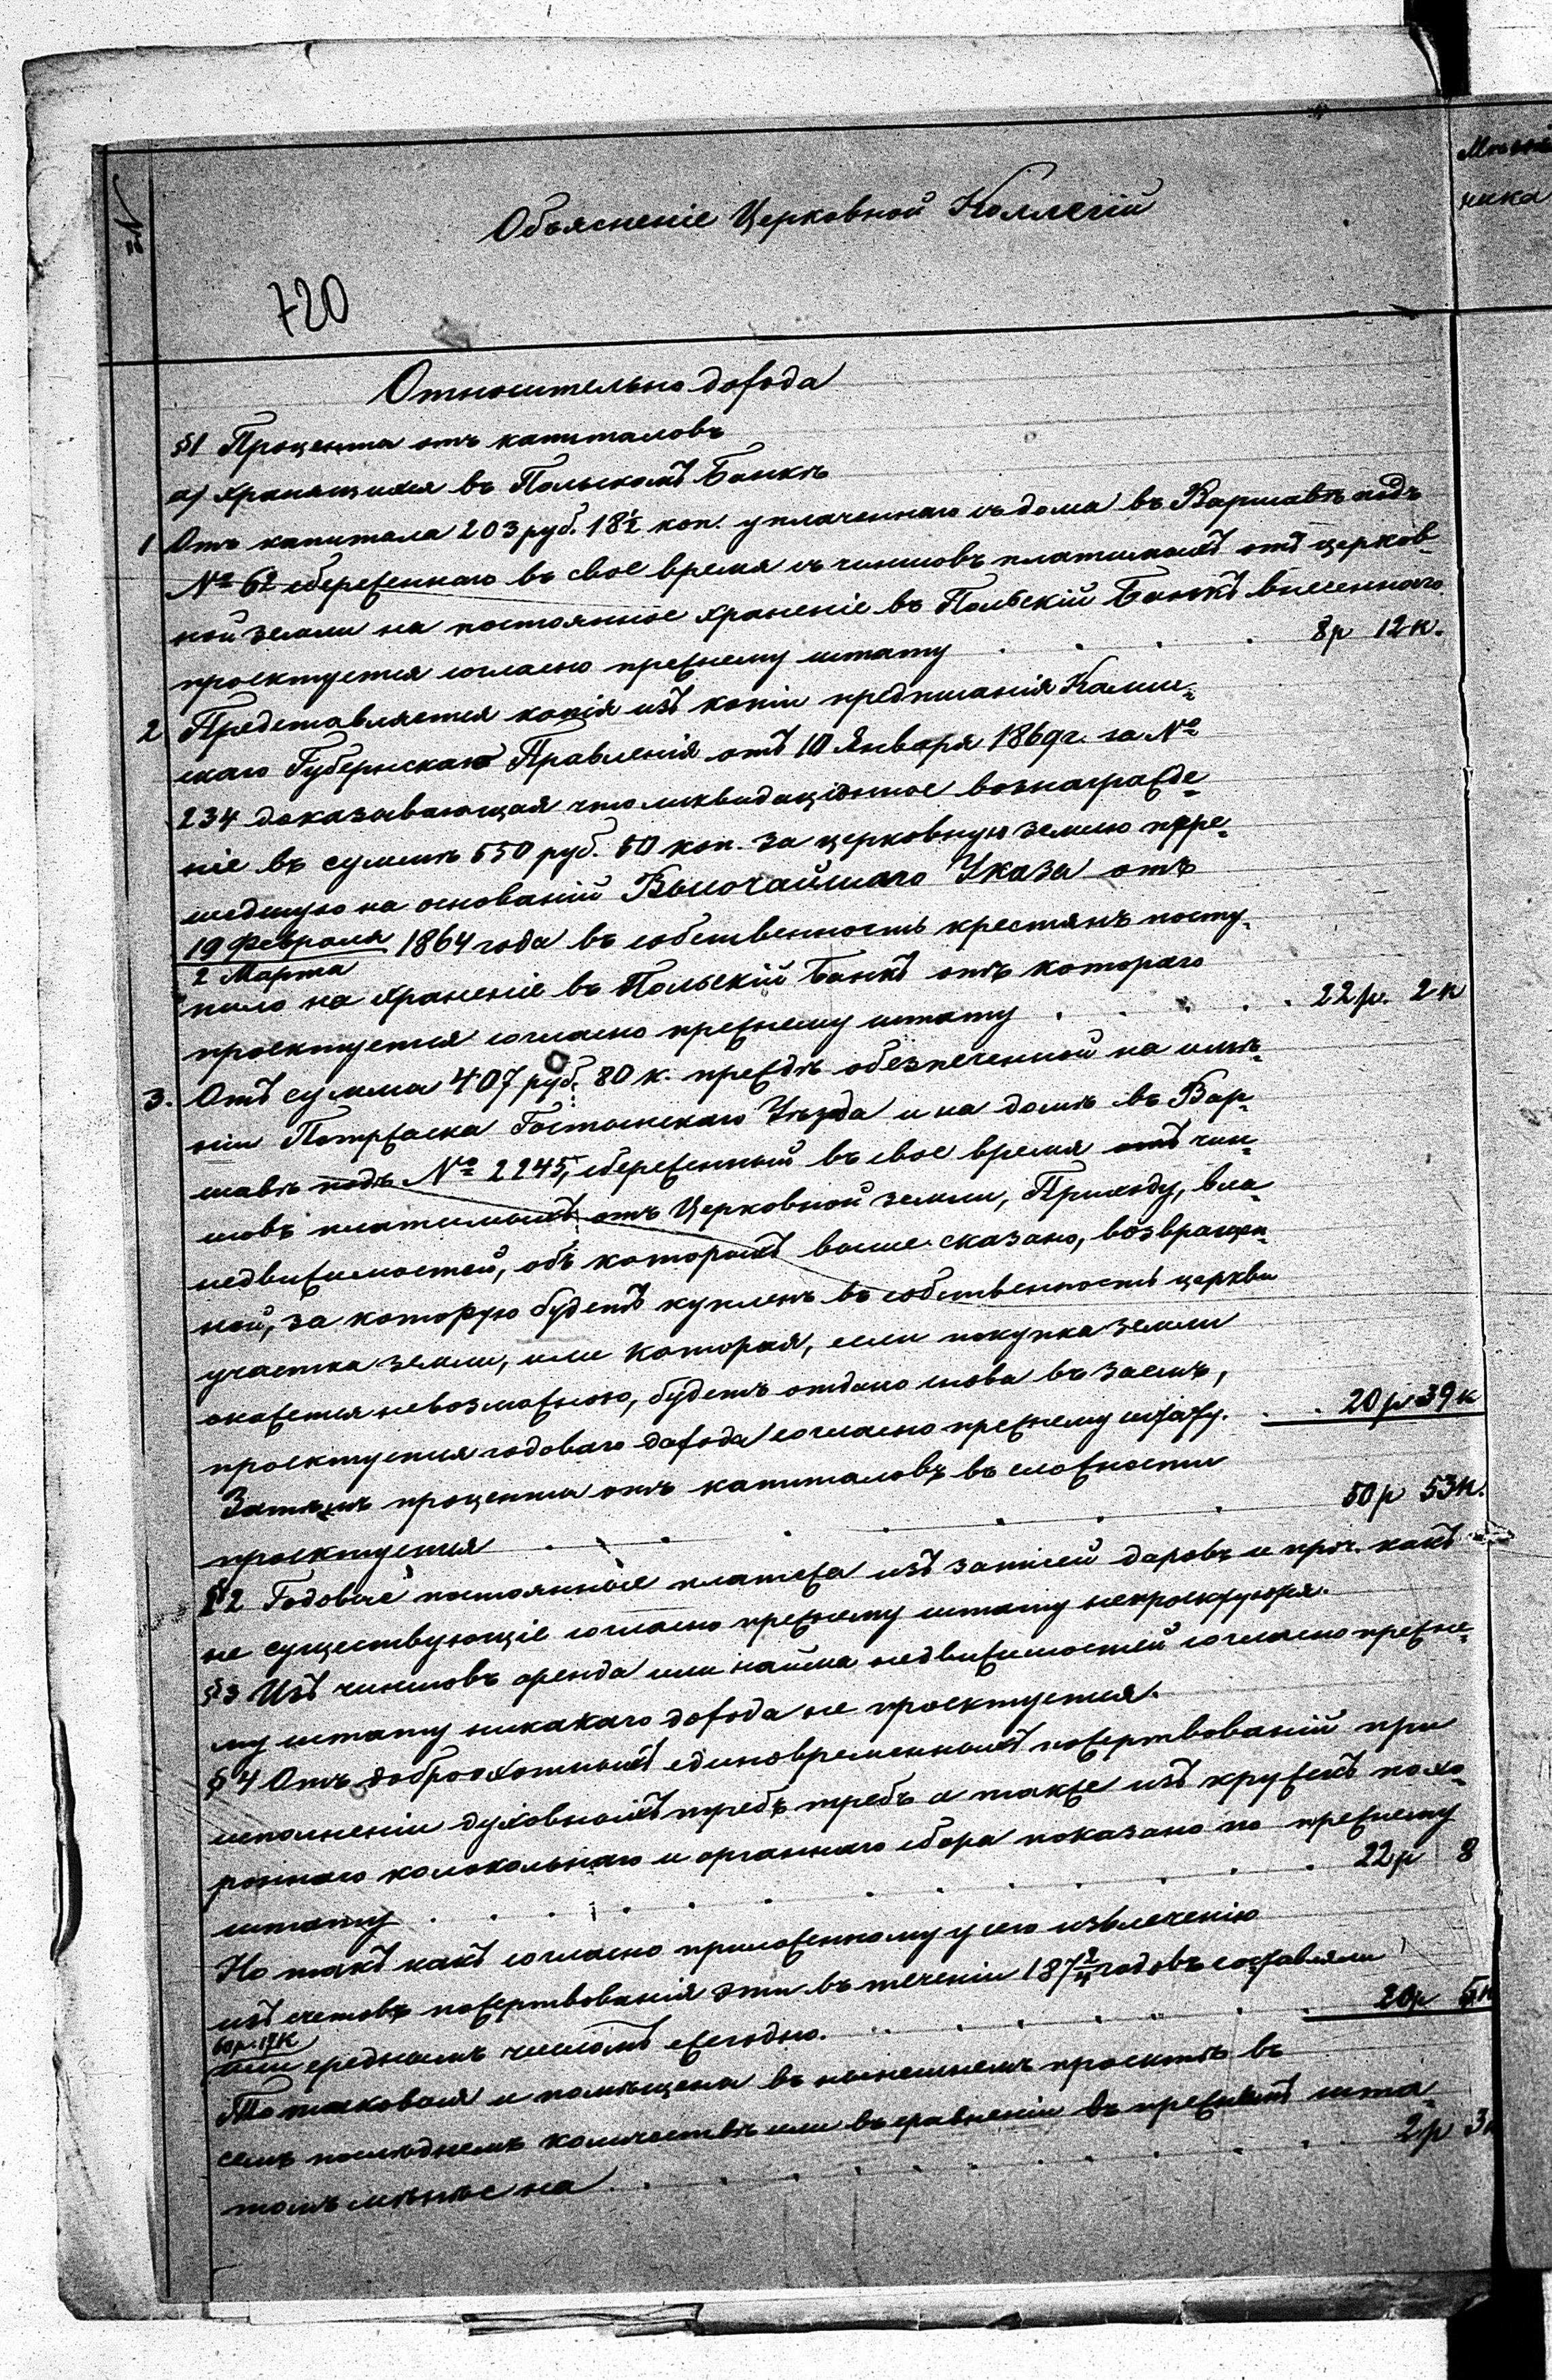 №
Объясненіе Церковной Коллегіи
720
Относительно дохода
§1 Проценты отъ капиталовъ
а) хранящихся въ Польскомъ Банкѣ
1 Отъ капитала 203 руб. 18½ коп. уплаченнаго съ дома въ Варшавѣ подъ
№ 62 сбереженнаго въ свое время съ чиншовъ платимыхъ отъ церков-
ной земли на постоянное храненіе въ Польскій Банкъ внесеннаго
проектуется согласно прежнему штату . . . 8 р 12 к.
2 Представляется копія изъ копіи предписанія Калиш-
скаго Губернскаго Правленія отъ 10 Января 1869 г. за №
234 доказывающая что ликвидаціонное вознагражде-
ніе въ суммѣ 550 руб. 50 коп. за церковную землю пере-
шедшую на основаніи Высочайшаго Указа отъ
19 Февраля 1864 года въ собственность крестянъ посту-
2 Марта
пило на храненіе въ Польскій Банкъ отъ котораго
проектуется согласно прежнему штату . . . . . 22 р. 2 к
3. Отъ суммы 407 руб. 80 к. прежде обезпеченной на имѣ-
ніи Гостынскаго Уѣзда и на домѣ въ Вар-
шавѣ подъ № 2245, сбереженный въ свое время отъ чин-
шовъ платимыхъ отъ Церковной земли, Приходу, вла.
недвижимостей, объ которыхъ выше сказано, возвращен-
ной, за которую будетъ купленъ въ собственность церкви
участка земли, или которая, если покупка земли
окажется невозможною, будетъ отдано снова въ заемъ,
проектуется годоваго дохода согласно прежнему штату. . . 20 р 39 к
Затѣмъ проценты отъ капиталовъ въ сложности
проектуется . . . . . . 50 р 53 к.
§2 Годовые постоянные платежа изъ записей даровъ и проч. какъ
не существующіе согласно прежнему штату непроектуются.
§3 Изъ чиншовъ аренда или найма недвижимостей согласно прежне-
му штату никакаго дохода не проектуется.
§4 Отъ доброхотныхъ единовременныхъ пожертвованій при
исполненіи духовныхъ требъ требъ а также изъ кружекъ похо-
роннаго колокольнаго и органнаго сбора показано по прежнему
штату . . . . . . . . 22 р 8
Но такъ какъ согласно приложенному у сего извлеченію
изъ счетовъ пожертвованія эти въ теченіи годовъ составляли
60 р. 17 к
или среднимъ числомъ ежегодно. . . . . . 20 р 5 к
То таковыя и помѣщены въ нынешнемъ проектѣ въ
семъ послѣднемъ количествѣ или въ сравненіи въ прежнимъ шта-
томъ менѣе на . . . . . . . 2 р 3 к